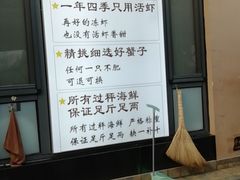 ★一年四季只用活虾
再好的冻虾
也没有活虾香甜
★精挑细选好蟹子
任何一只不肥
可退可换
★所有过秤海鲜
保证足斤足两
所有过秤海鲜 严格标重
保证足斤足两 缺一补十